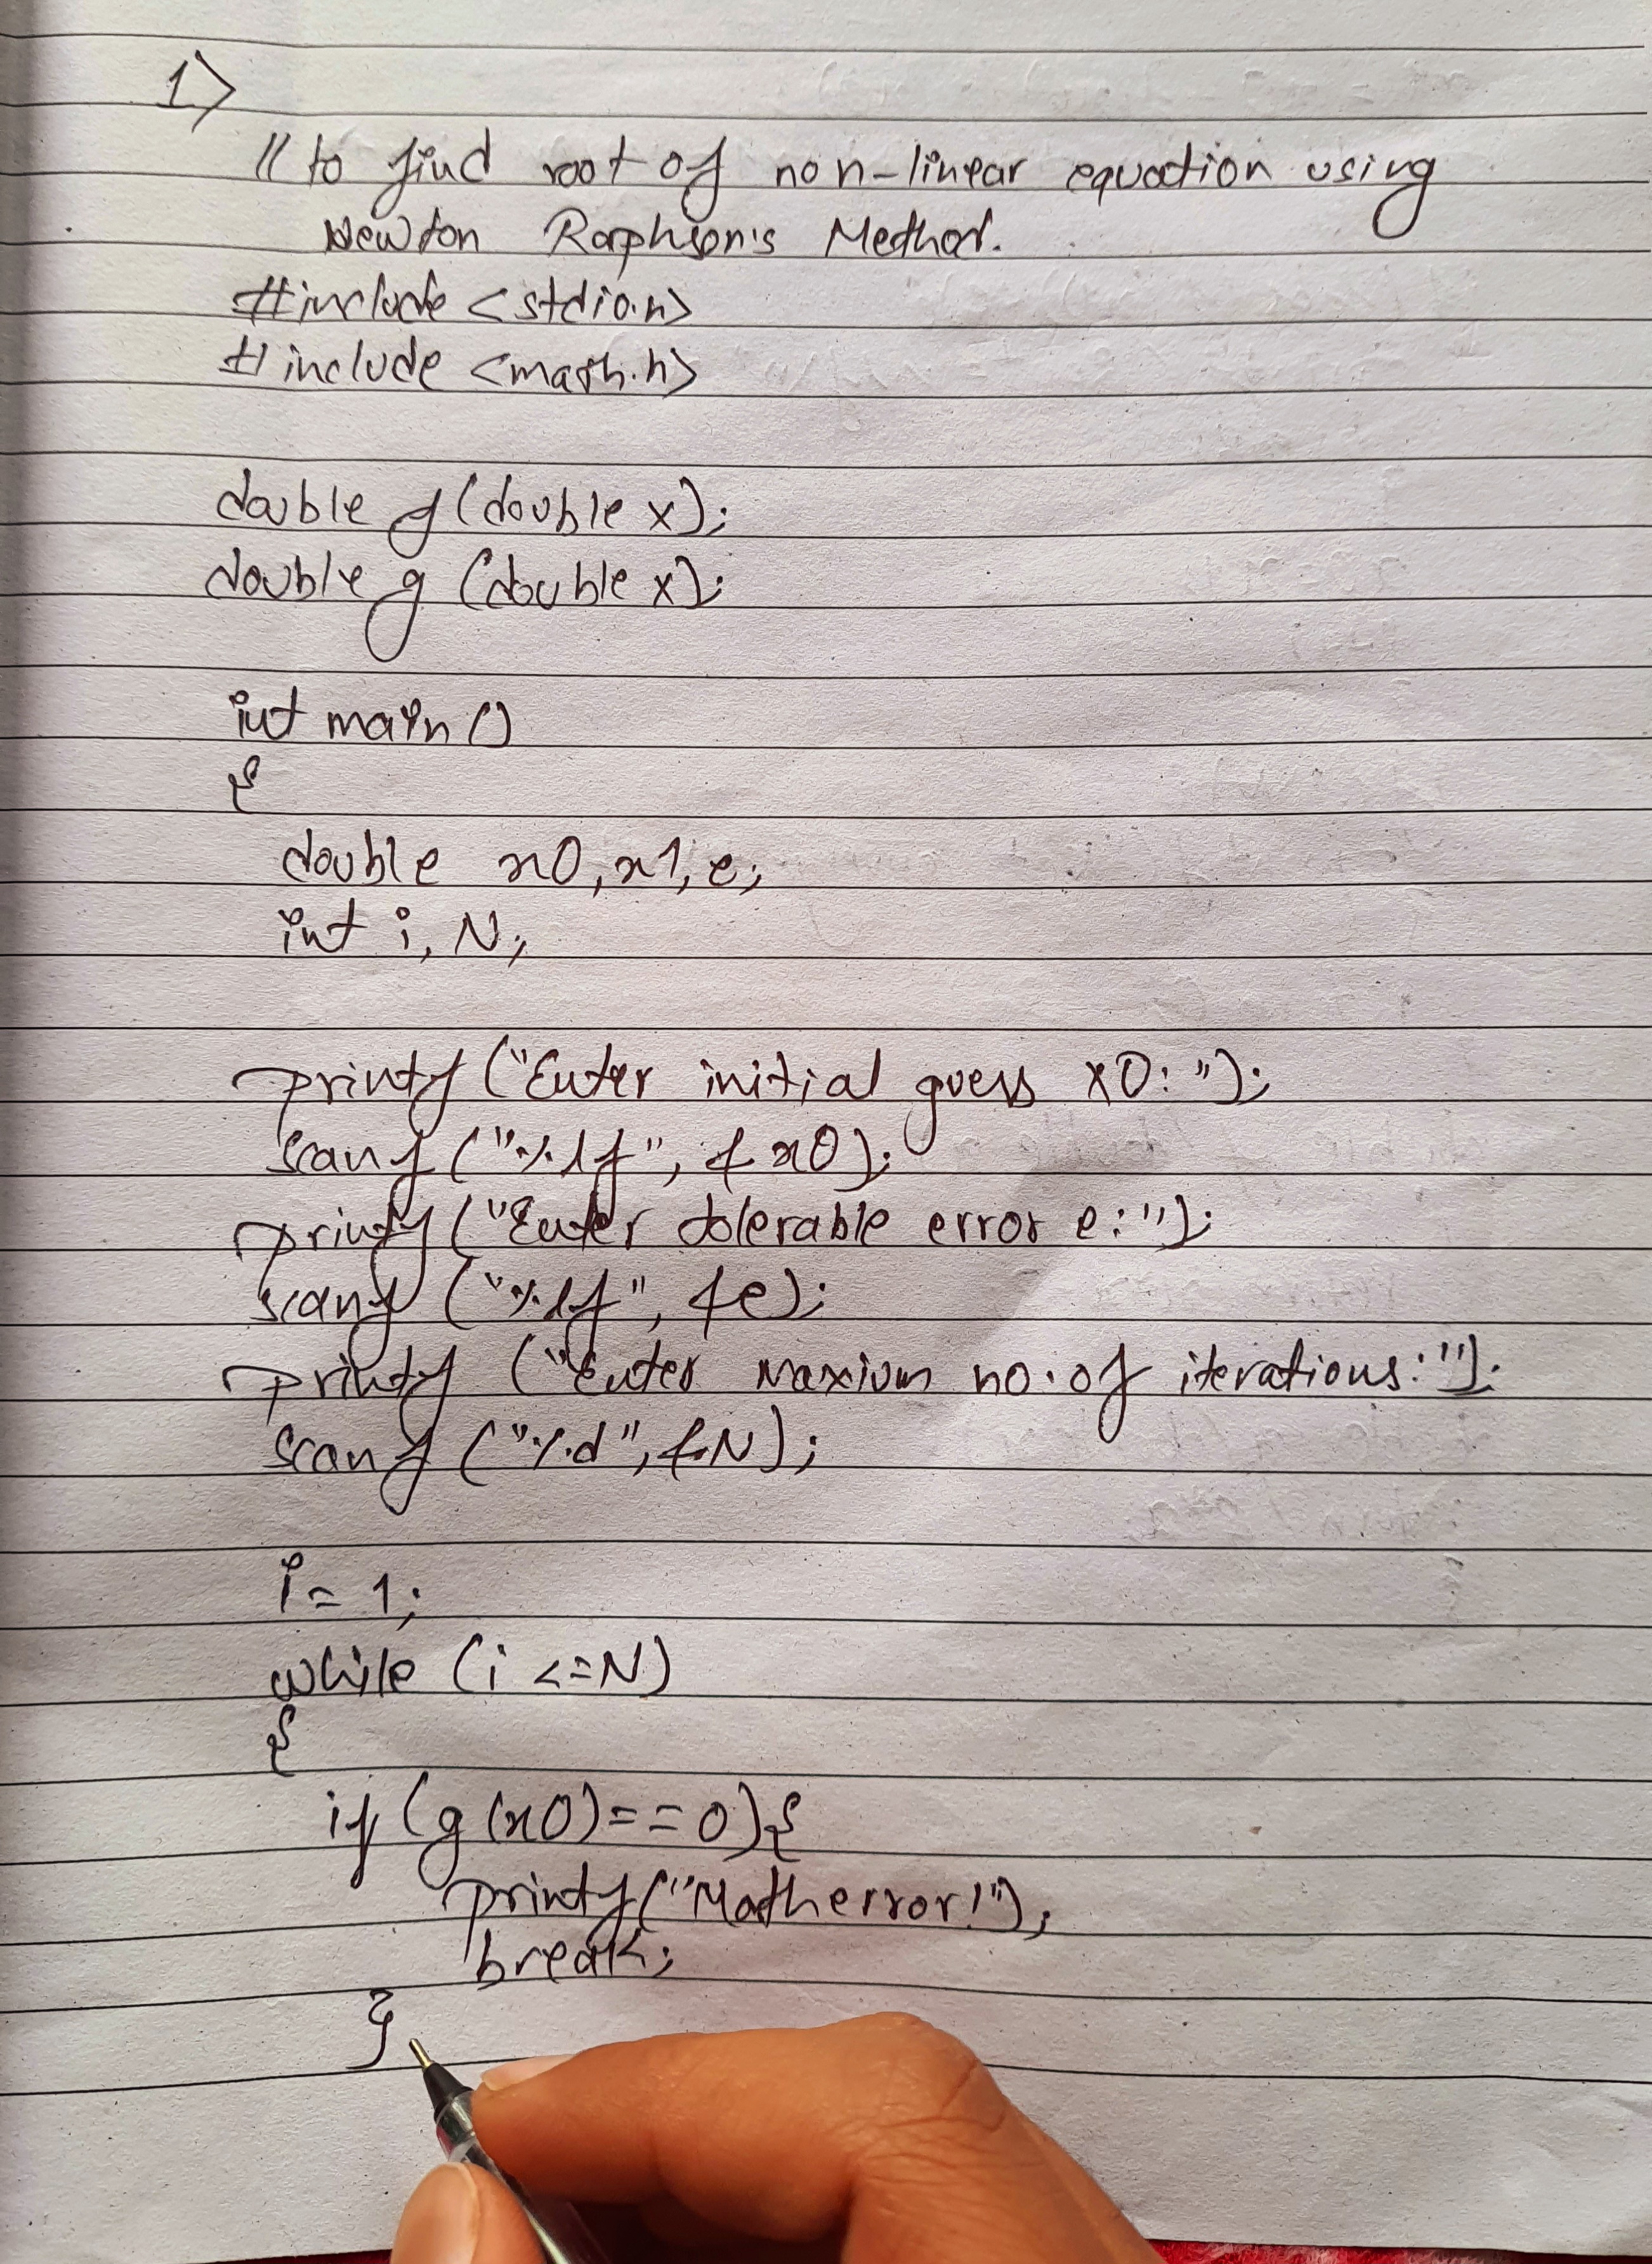 1>
// to find root of non-linear equation using
Newton Raphson's Method.
#include <stdio.h>
#include <math.h>
double f(double x);
double g (double x);
int main ()
{
double x0, x1, e;
int i, N;
printf ("Enter initial guess x0: ");
scanf ("%lf", &x0);
printf ("Enter tolerable error e:");
scanf ("%lf", &e);
printf ("Enter Maxium no. of iterations:");
scanf ("%d", &N);
i = 1;
while (i <= N)
{
if (g(x0) == 0){
printf("Math error!");
break;
}